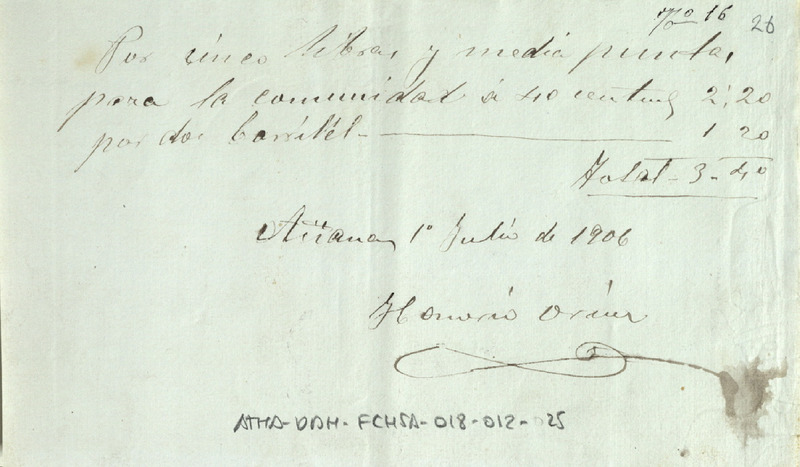 Nº 16 26
Por cinco libras y media puntas
para la comunidad á 40 centims 2,20
por dos barriles 1 20
Total - 3 - 40
Añana 1º Julio de 1906
Honorio
ATHA-DAH-FCHSA-018-012-025